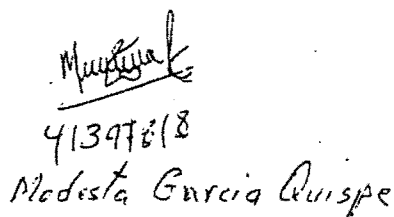 41397618
Modesta Garcia Quispe